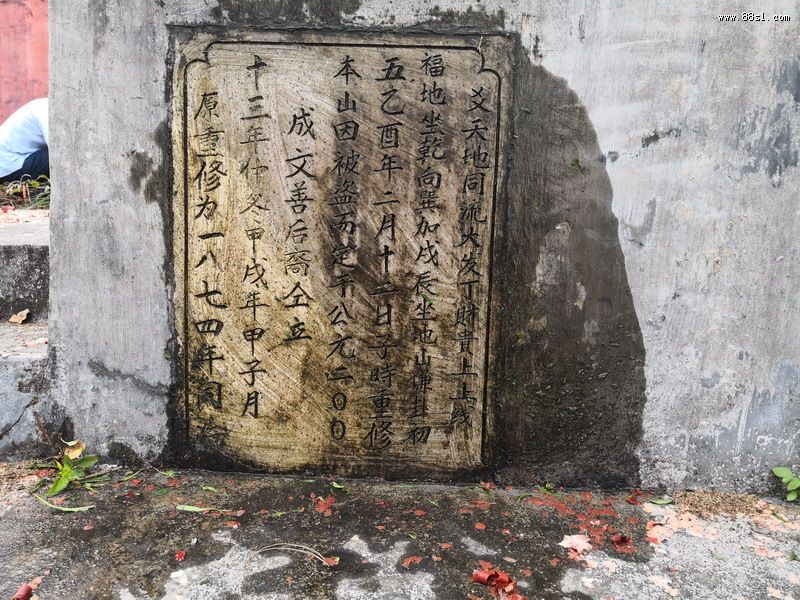 原重修为一八七四年同治
十三年仲冬甲戌年甲子月
成文善后裔仝立
本山因被盗而定于公元二00
五乙酉年二月十二日子時重修
福地坐乾向巽加戌辰坐地山卦初
爻天地同流大发丁財貴上上线
www.88sl.com